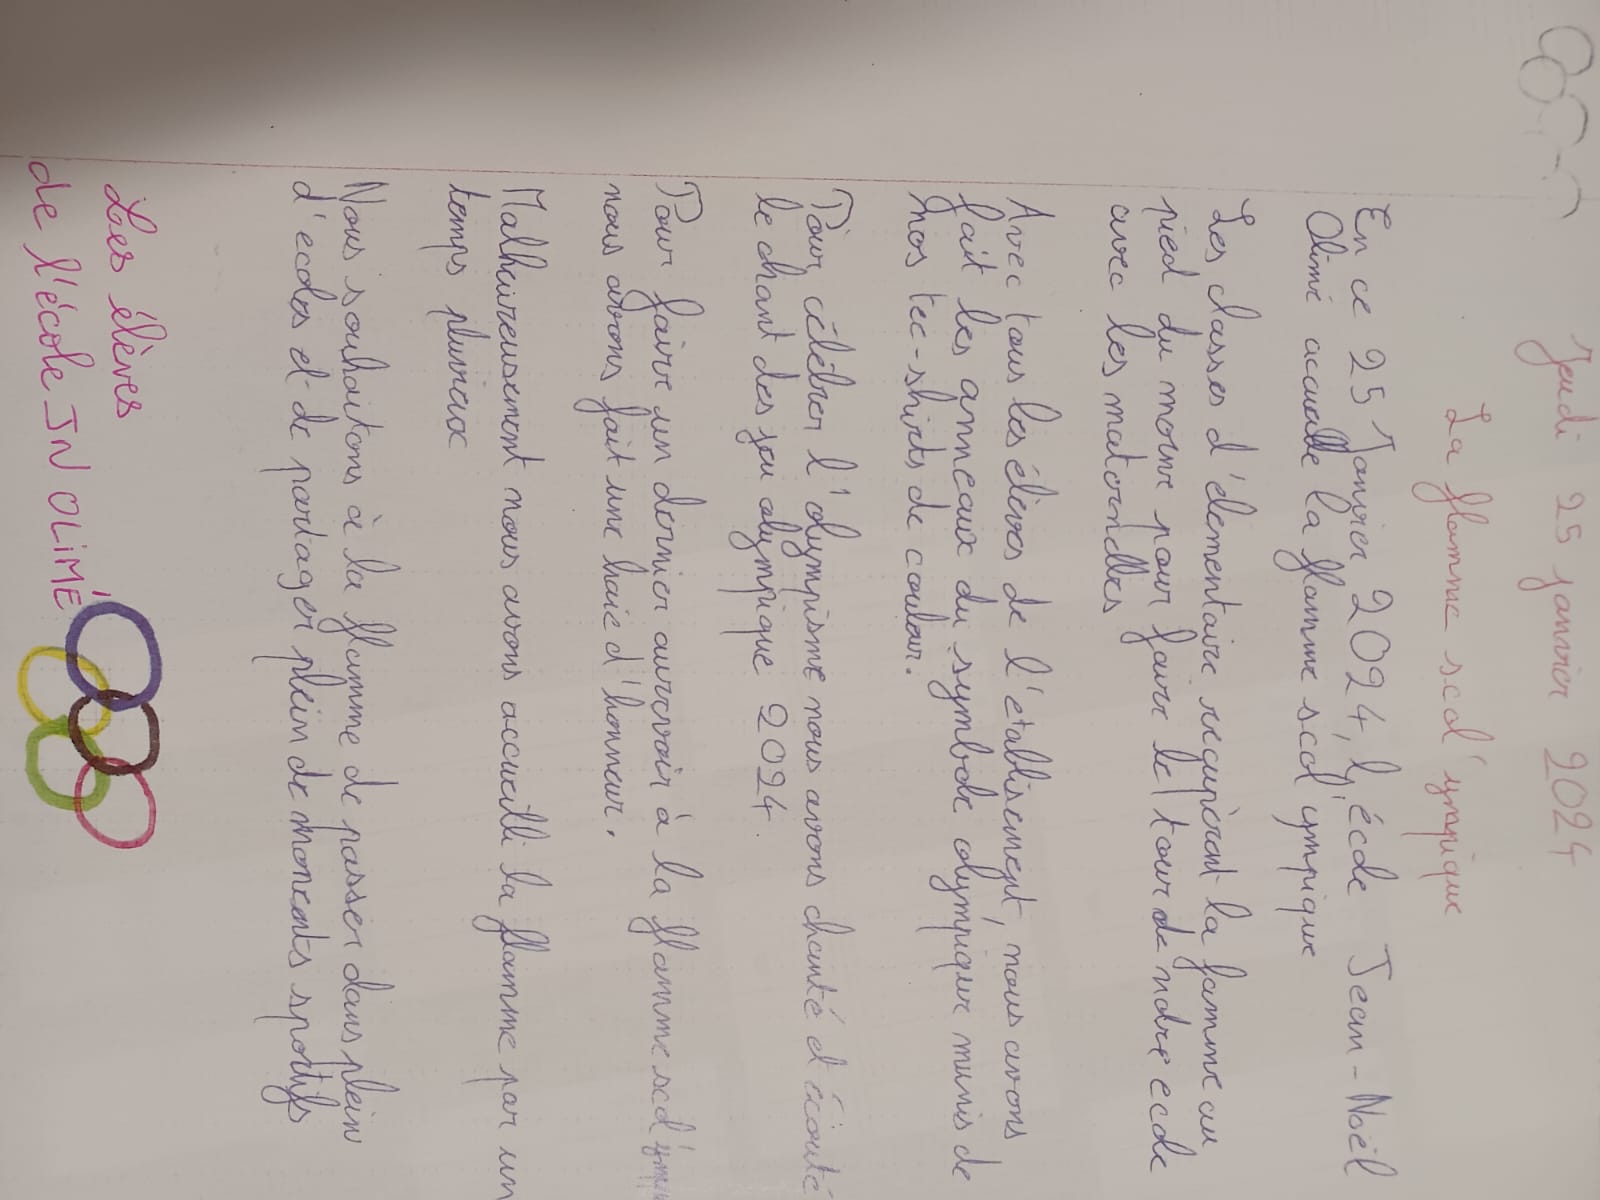 Jeudi 25 janvier 2024
La flamme scol'ympique
En ce 25 Janvier 2024, l'école Jean-Noël
Olimé acueille la flamme scol'ympique
Les classes d'élementaire requièrent la flamme au
pied du morne pour faire le tour de notre ecole
avec les maternelles
Avec tous les élèves de l'etablisement, nous avons
fait les anneaux du symbole olympique munis de
nos tee-shirts de couleur.
Pour célébrer l'olympisme nous avons chanté et écouté
le chant des jeu olympique 2024.
Pour faire un dernier aurevoir à la flamme scol'ympique
nous avons fait une haie d'honneur.
Malheureusement nous avons accueilli la flamme par un
temps pluvieux
Nous souhaitons à la flamme de passer dans plein
d'ecoles et de partager plein de moments sportifs
Les élèves
de l'école JN OLIMÉ